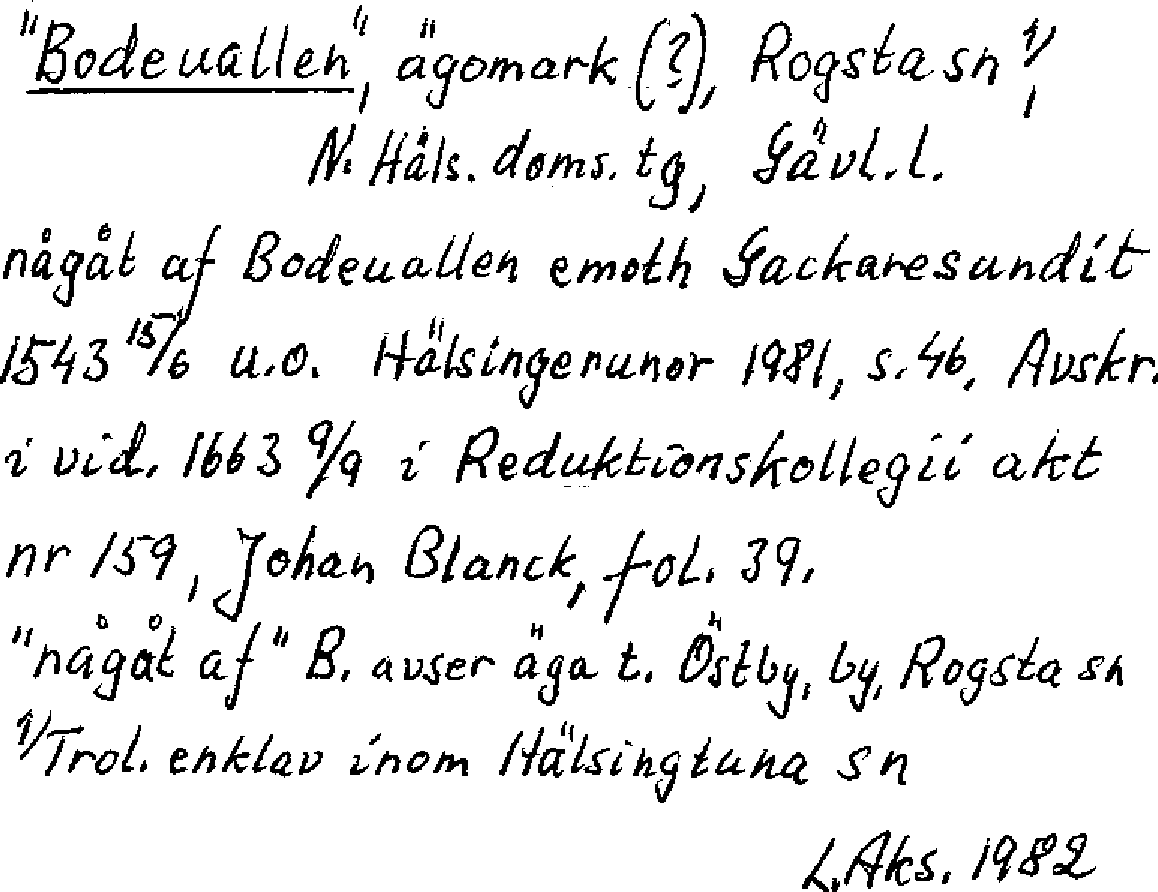 "Bodeuallen", ägomark (?), Rogsta sn 1/,
N. Häls. doms. tg, Gävl. l.
någåt af Bodeuallen emoth Gackaresundit
1543 15/6 u.o. Hälsingerunor 1981, s. 46. Avskr.
i vid. 1663 9/9 i Reduktionskollegii akt
nr 159, Johan Blanck, fol. 39.
"någåt af" B. avser äga t. Östby, by, Rogsta sn
1/ Trol. enklav inom Hälsingtuna sn
L. Aks. 1982